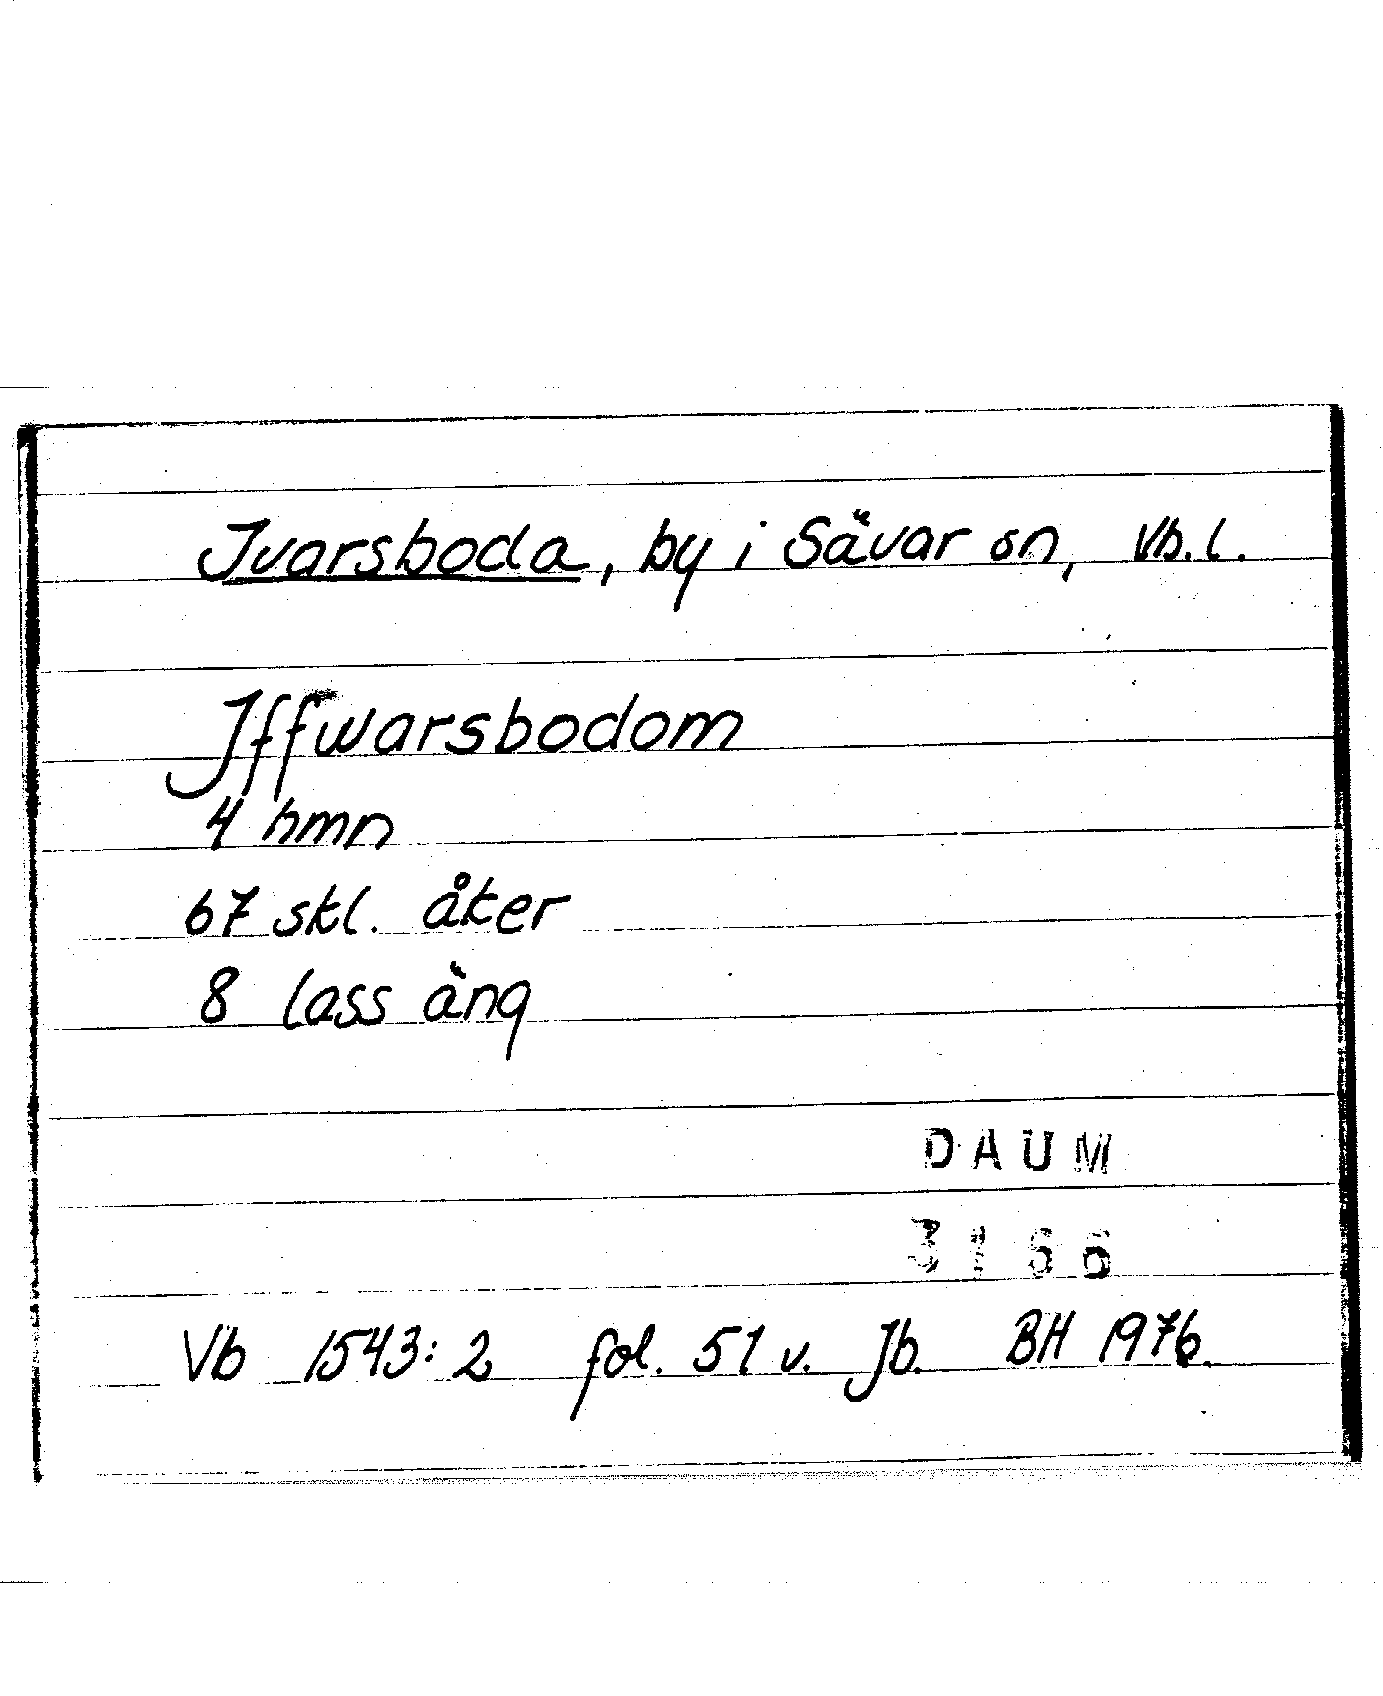 Ivarsboda, by i Sävar sn, Vb.l.
Iffwarsbodom
4 hmn
67 skl. åker
8 lass äng
DAUM
3166
Vb 1543:2 fol. 51 v. Jb. BH 1976.